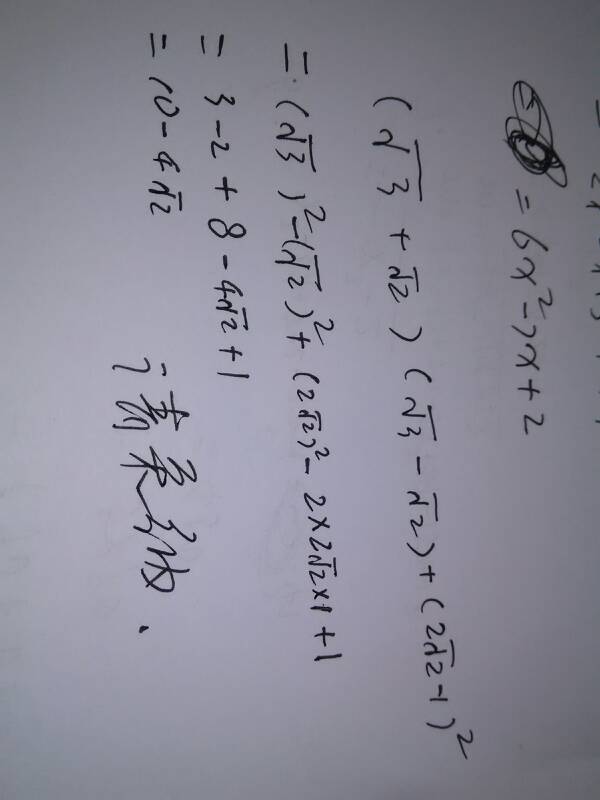 = 6x²-7x+2
(√3+√2)(√3-√2)+(2√2-1)²
= (√3)²-(√2)²+(2√2)²-2×2√2×1+1
= 3-2+8-4√2+1
= 10-4√2
请采纳.